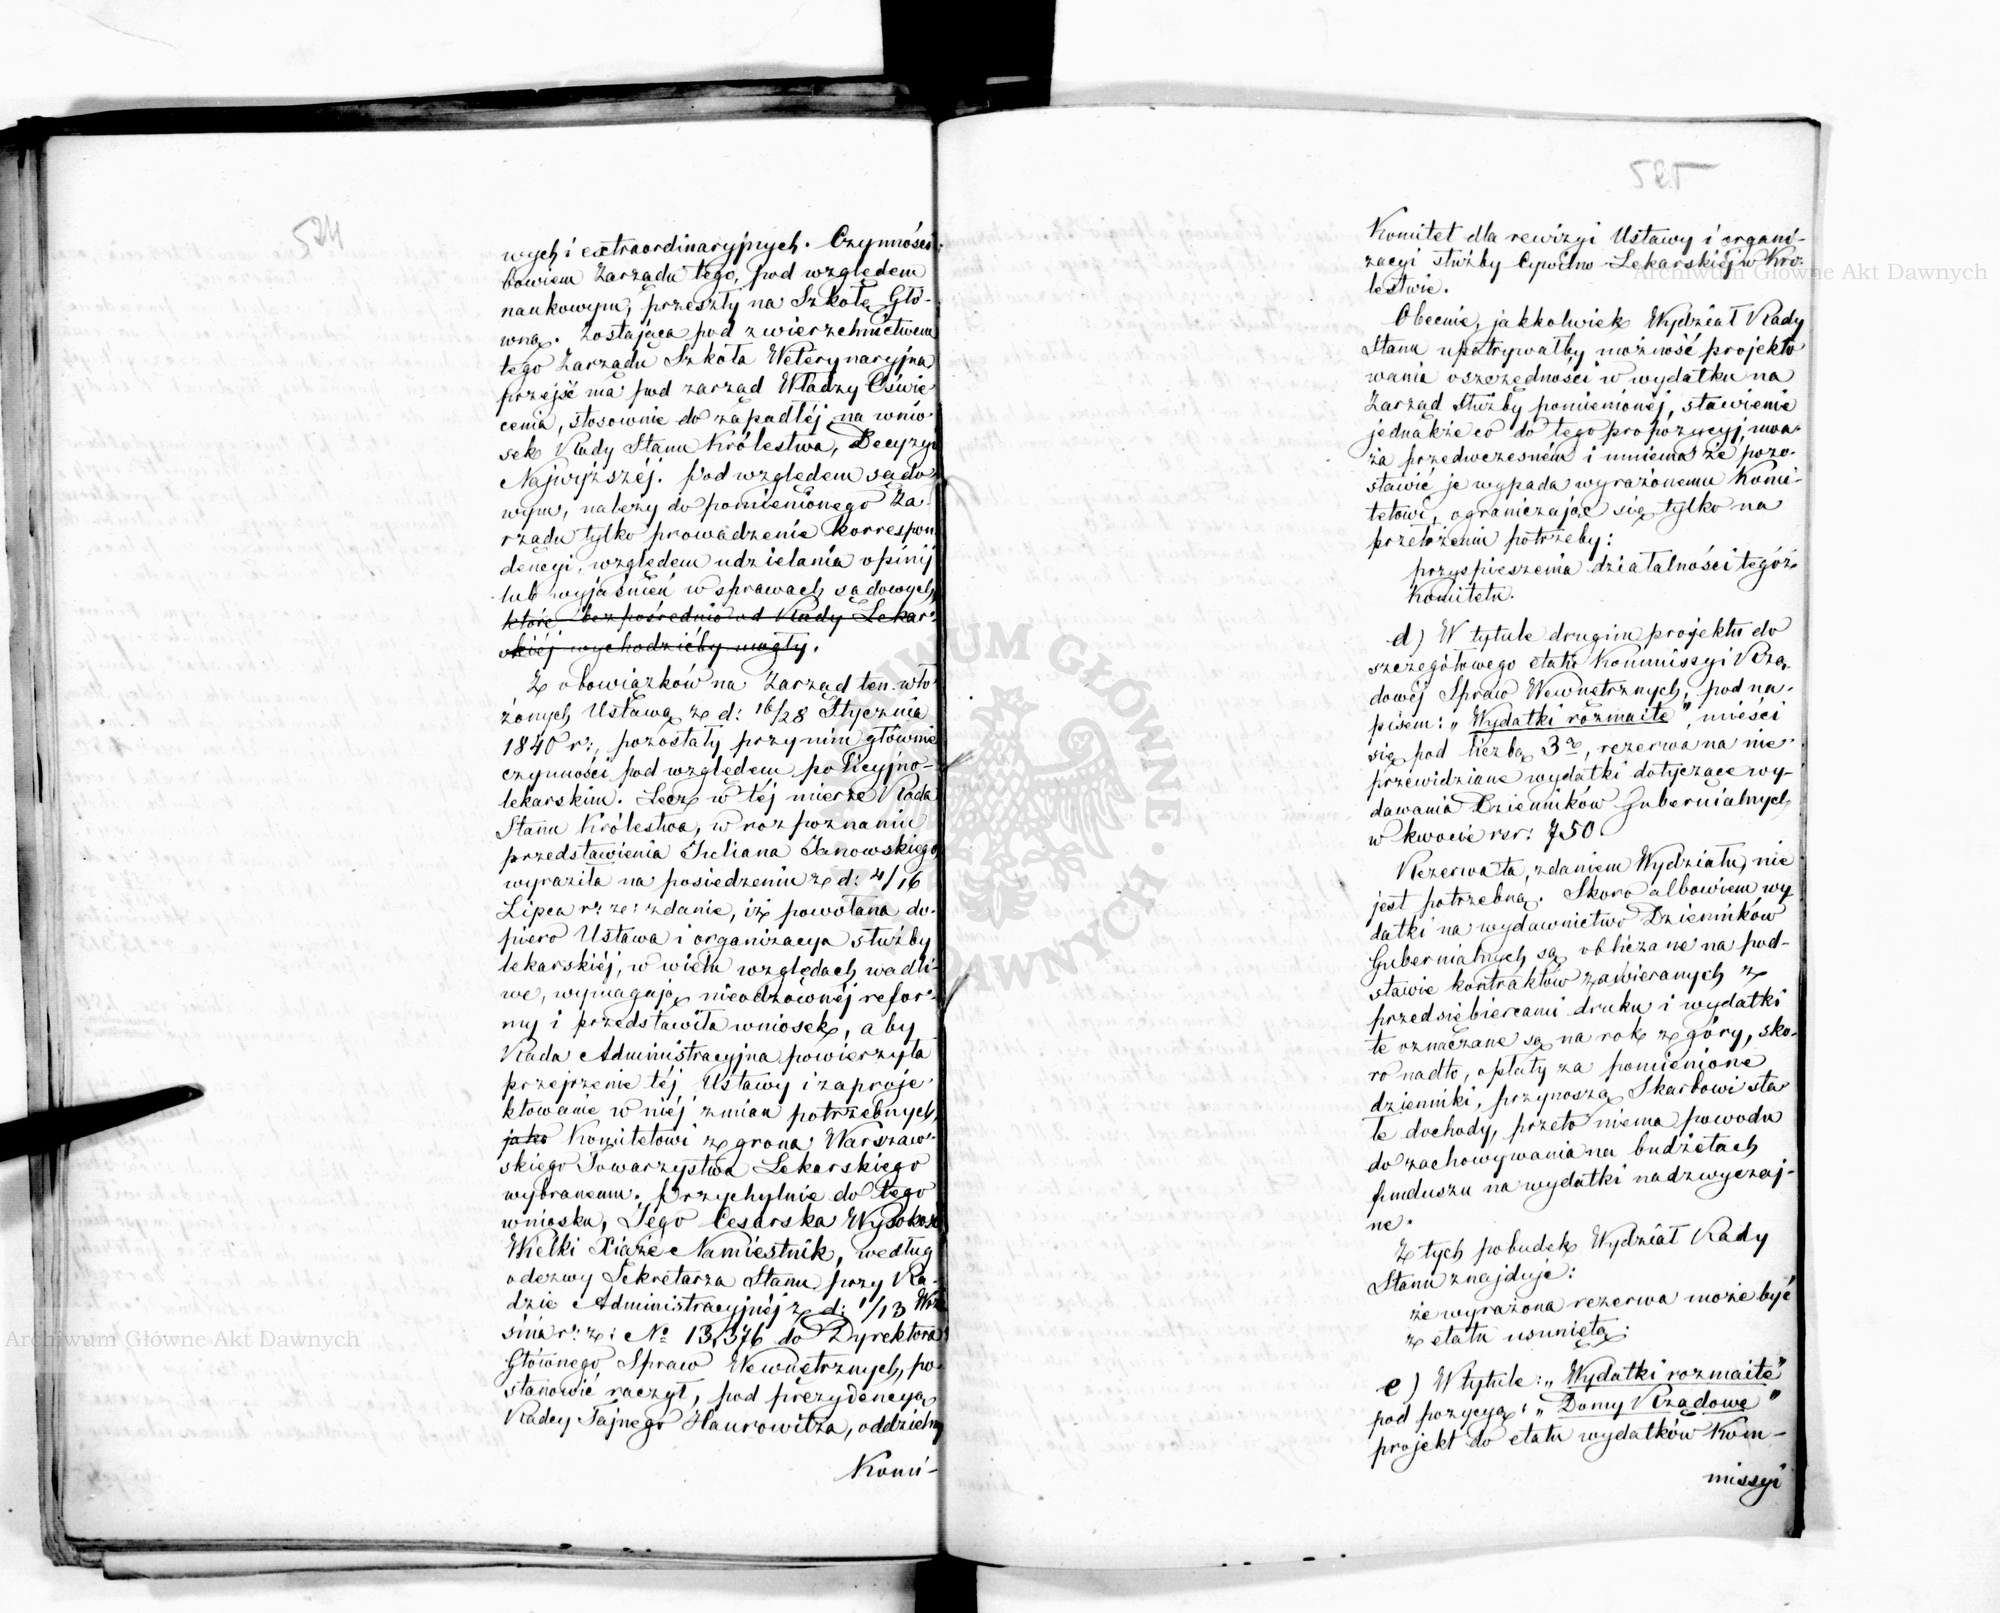 524
wych i extraordinaryjnych. Czynności
bowiem Zarządu tego, pod względem
naukowym, przeszły na Szkołę Głó-
wną. Zostająca pod zwierzchnictwem
tego Zarządu Szkoła Weterynaryjna
przejść ma pod zarząd Władzy Oświe-
cenia, stosownie do zapadłéj na wnio-
sek Rady Stanu Królestwa, Decyzyi
Najwyższéj. Pod względem sądo-
wym, należy do pomienionego Za-
rządu tylko prowadzenie korrespon-
dencyi, względem udzielania opinij
lub wyjaśnień w sprawach sądowych,
które bezpośrednio od Rady Lekar-
skiéj wychodzićby mogły.
Z obowiązków na Zarząd ten wło-
żonych Ustawą z d: 16/28 Stycznia
1840 r:, pozostały przy nim głównie
czynności pod względem policyjno-
lekarskim. Lecz w téj mierze Rada
Stanu Królestwa, w rozpoznaniu
przedstawienia Juliana Janowskiego
wyraziła na posiedzeniu z d: 4/16
Lipca r: z: zdanie, iż powołana do-
piero Ustawa i organizacya służby
lekarskiéj, w wielu względach wadli-
we, wymagają nieodzównéj refor-
my i przedstawiła wniosek, aby
Rada Administracyjna powierzyła
przejrzenie téj Ustawy i zaproje-
ktowanie w niéj zmian potrzebnych,
jako Komitetowi z grona Warszaw-
skiego Towarzystwa Lekarskiego
wybranemu. Przychylnie do tego
wniosku, Jego Cesarska Wysokość
Wielki Xiąże Namiestnik, według
odezwy Sekretarza Stanu przy Ra-
dzie Administracyjnéj z d: 1/13 Wrze
śnia r: z: No 13,376 do Dyrektora
Głównego Spraw Wewnętrznych, po-
stanowić raczył, pod prezydencyą
Radcy Tajnego Haurowitza, oddzielny
Komi-
525
Komitet dla rewizyi Ustawy i organi-
zacyi służby Cywilno-Lekarskiéj w Kró-
lestwie.
Obecnie, jakkolwiek Wydział Rady
Stanu upatrywałby możność projekto
wania oszczędności w wydatku na
Zarząd Służby pomienionéj, stawienie
jednakże co do tego propozycyj, uwa-
ża przedwczesném i mniema że pozo-
stawić je wypada wyrażonemu Komi-
tetowi, ograniczając się tylko na
przełożeniu potrzeby:
przyspieszenia działalności tegóż
Komitetu.
d) W tytule drugim projektu do
szczegółowego etatu Kommissyi Rzą-
dowéj Spraw Wewnętrznych, pod na-
pisem: „Wydatki rozmaite", mieści
się pod liczbą 3ą, rezerwa na nie-
przewidziane wydatki dotyczące wy-
dawania Dzienników Gubernialnych,
w kwocie rsr: 750
Rezerwa ta, zdaniem Wydziału, nie
jest potrzebną. Skoro albowiem wy
datki na wydawnictwo Dzienników
Gubernialnych są obliczane na pod-
stawie kontraktów zawieranych z
przedsiębiercami druku i wydatki
te oznaczane są na rok z góry, sko-
ro nadto, opłaty za pomienione
dzienniki, przynoszą Skarbowi sta-
łe dochody, przeto niema powodu
do zachowywania na budżetach
funduszu na wydatki nadzwyczaj-
ne.
Z tych pobudek Wydział Rady
Stanu znajduje:
że wyrażona rezerwa może być
z etatu usuniętą;
e) W tytule: „Wydatki rozmaite"
pod pozycyą: „Domy Rządowe"
projekt do etatu wydatków Kom-
missyi
Archiwum Główne Akt Dawnych
Archiwum Główne Akt Dawnych
ARCHIWUM GŁÓWNE AKT DAWNYCH